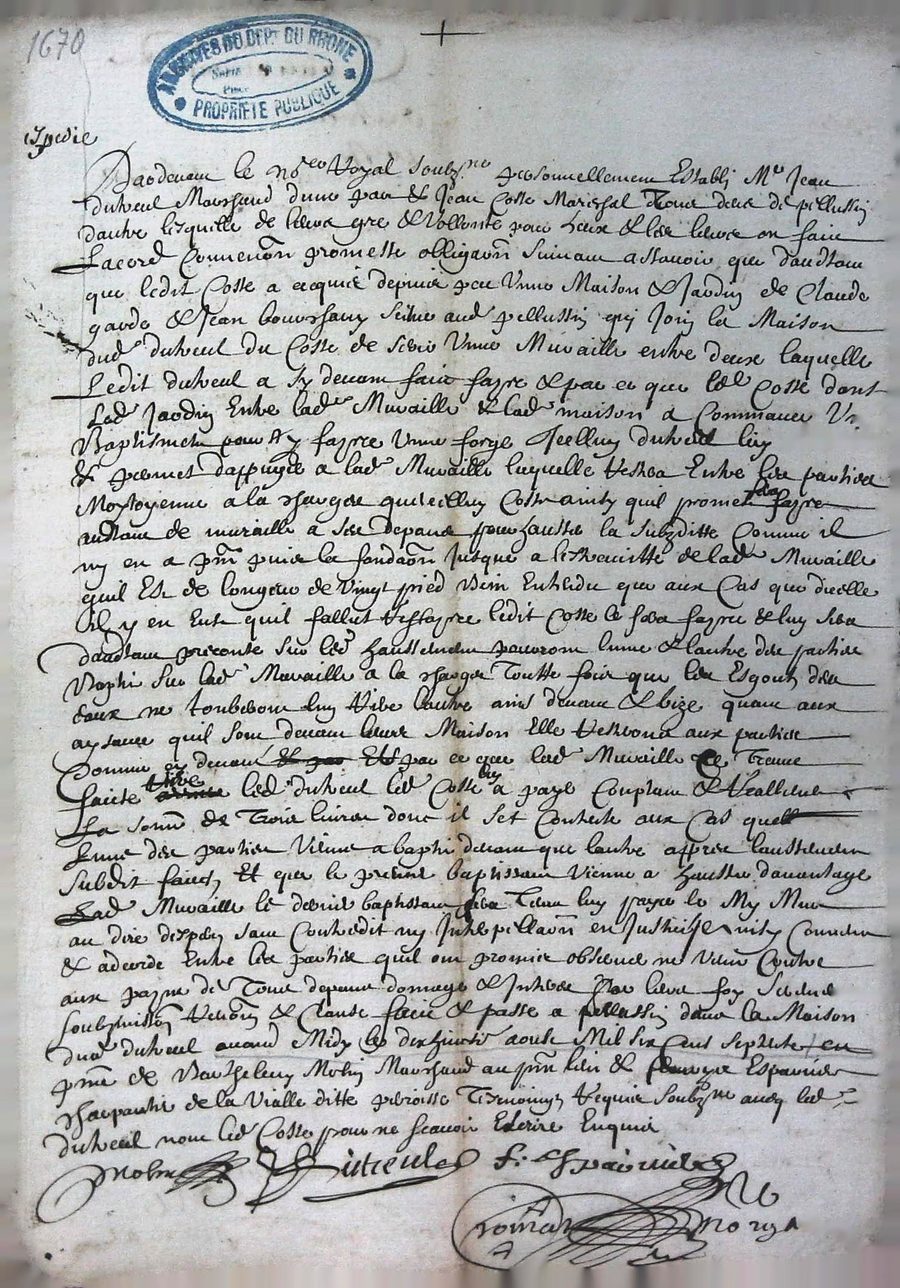 1670
ARCHIVES DU DEPt DU RHONE
PROPRIETE PUBLIQUE
expedie
Pardevant le nore Royal soubzne personnellement Establj Me Jean
duteul Marchand dune part & Jean Coste Mareschal Tous deux de pellussin
dautre lesquelle de leurs gre & vollonte pour Eux & les leurs on faict
Lacord Convenon promesse obligaon suivant assavoir que dautant
que ledit Coste a acquis depuis peu Unne Maison & Jardin de Claude
garde & Jean bourchany scitue aud pellussin qui Join la Maison
dud duteul du Coste de Unne Muraille entre deux laquelle
Ledit duteul a sy devant faict fayre & par ce que led Coste dans
Led Jardin Entre lade Muraille & lade maison a Commancer Un
Baptisment pour y fayre Unne forge Icelluy duteul luy
& permet dappuyer a lade Muraille laquelle restera Entre les parties
Moytoyenne a la charge que icelluy Coste quil promet fayre
de muraille a ses depans pour hausser la Subzditte Comme il
ny en a pnt puis la fondaon Jusque a de lade Muraille
quil Est de longeur de Vingt pied Bien Entendu que aux Cas que dicelle
il y en Eust quil fallut reffayre ledit Coste le fera fayre & luy sera
dautant preconte sur led haussement pourront lunne & lautre des parties
Baptir sur lade Muraille a la charge Toutte fois que les Esgouts des
eaux ne tomberont luy lautre ains devant & bize quant aux
quil sont devant leurs Maison Elle resteront aux parties
Comme cy devant & par ce que lade Muraille se Treuve
faicte led duteul led Coste luy a paye Comptant & reallement
La somme de Trois livres dont il set Contente aux Cas quell
Lune des parties Vienne a baptir devant que lautre appres laussement
Subdit faict, Et que le premier baptissant Vienne a hausser davantage
Lade Muraille le dernier baptissant sera Tenu luy payer le My Mur
au dire despers sans Contredit ny Interpellaon en Justice Convenu
& acorde Entre les parties quil ont promis observer ne Venir Contre
aux payne de Tous depans domage & Interes par leurs foy serment
soubzmission renon & Clause faict & passe a pellussin dans la Maison
dud duteul avant Midy le dixhuict aoust Mil six Cens septante en
pnce de Barthelemy Molin Marchand au pnt lieu & Espavier
charpantier de la Vialle ditte perroisse Tesmoings requis soubzne avecq led
duteul non led Coste pour ne scavoir Escrire Enquis
Molin Duteul f. Espaviere